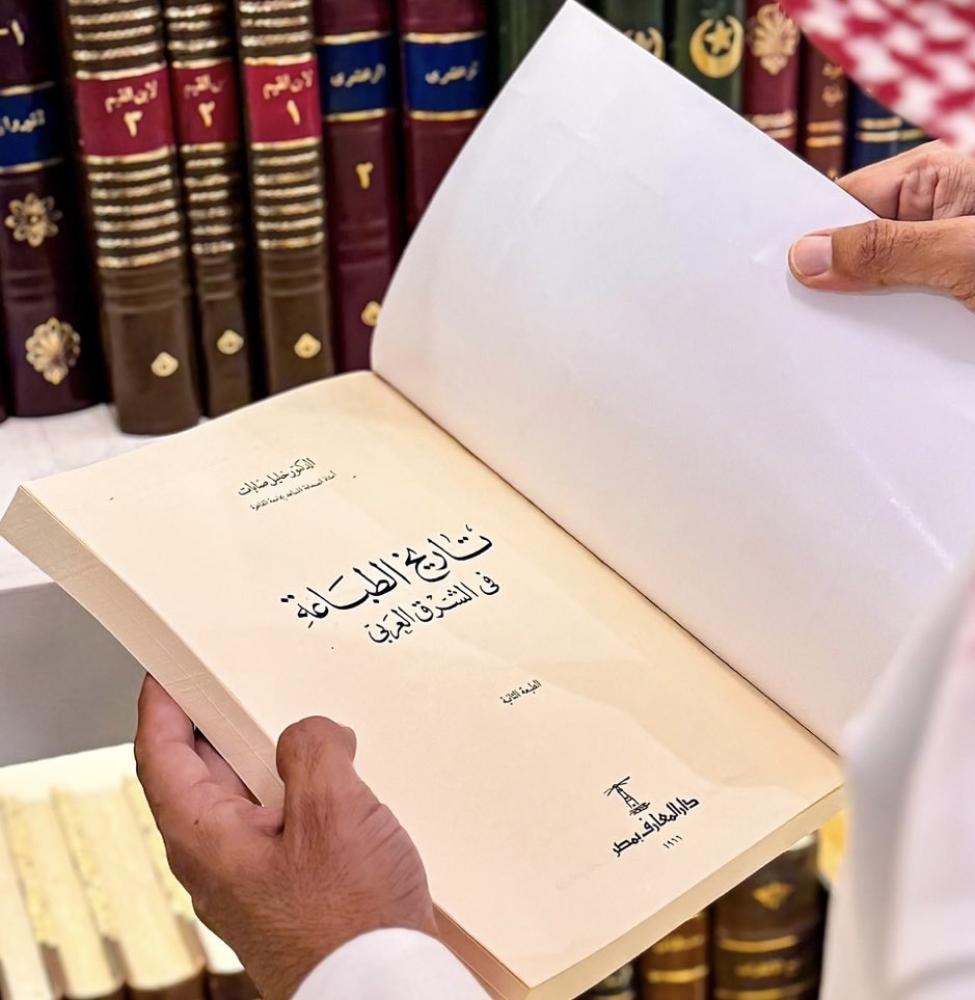 الدكتور خليل صابات
أستاذ الصحافة المساعد بجامعة القاهرة
تاريخ الطباعة
فى الشرق العربى
الطبعة الثانية
دار المعارف بمصر
١٩٦٦
لابن القيم
٣
٢
لابن القيم
١
الزمخشرى
٢